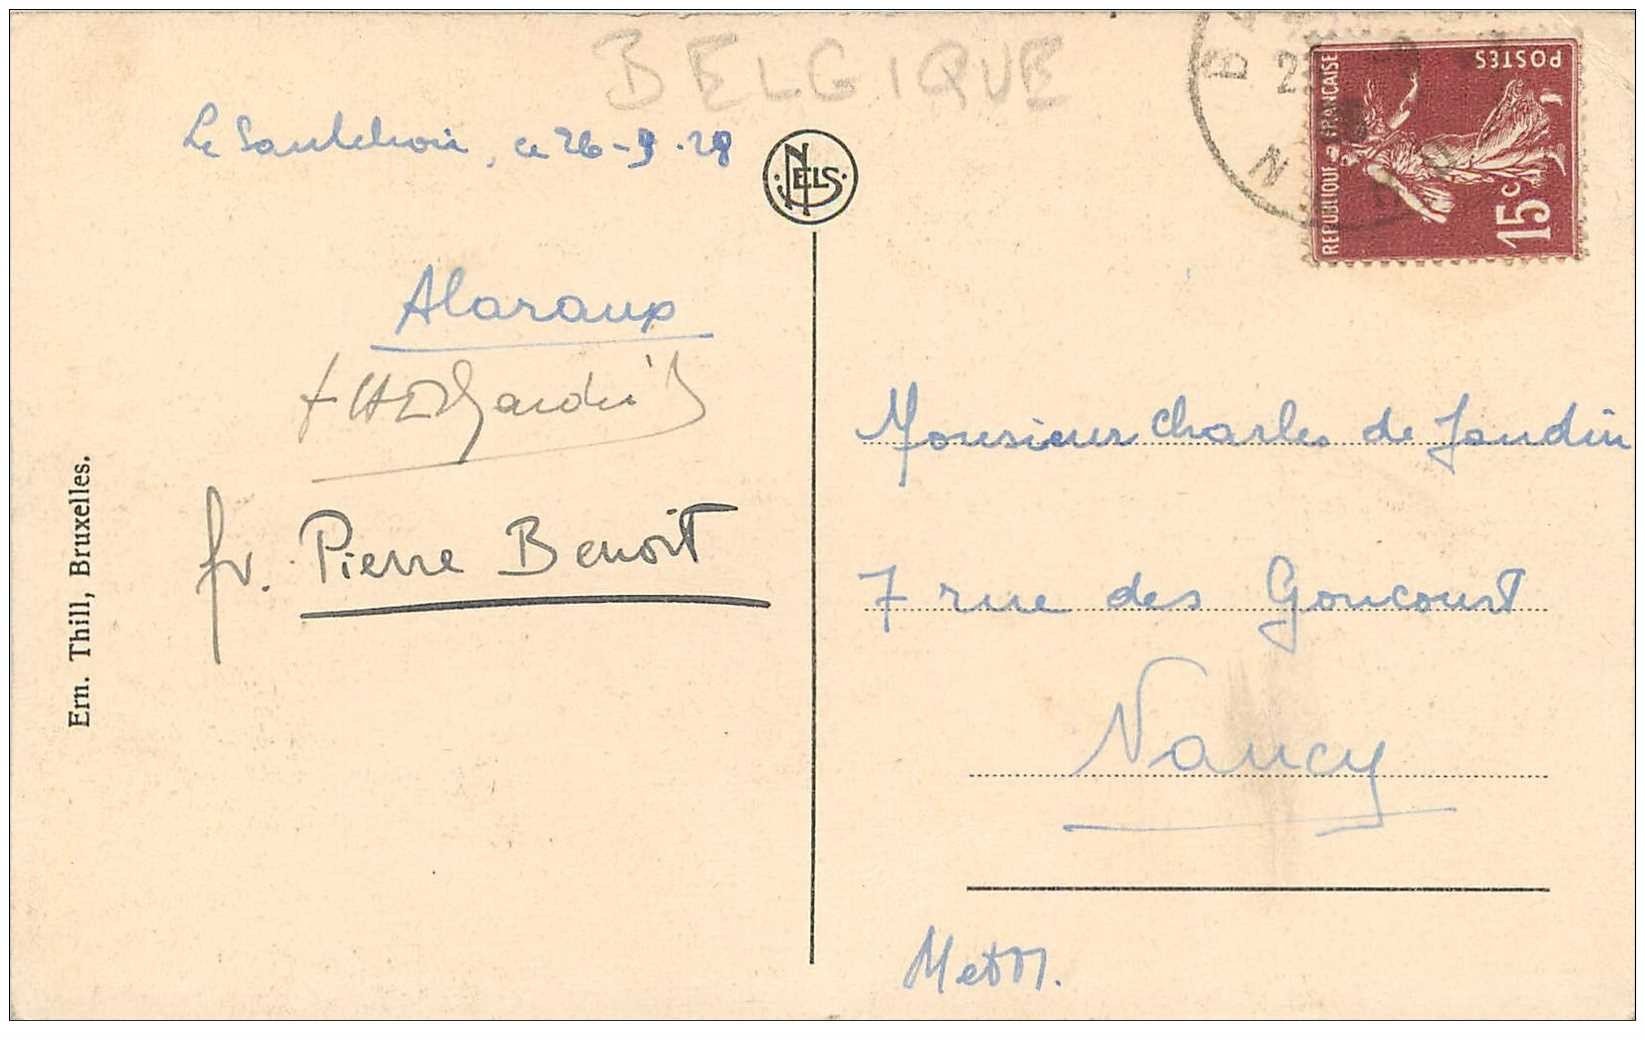 BELGIQUE
Le Saulchoir, ce 26-9-28
NELS
REPUBLIQUE - FRANÇAISE
POSTES
15c
Ern. Thill, Bruxelles.
fr. Pierre Benoit
Monsieur Charles de Jandin
7 rue des Goncourt
Nancy
MetM.